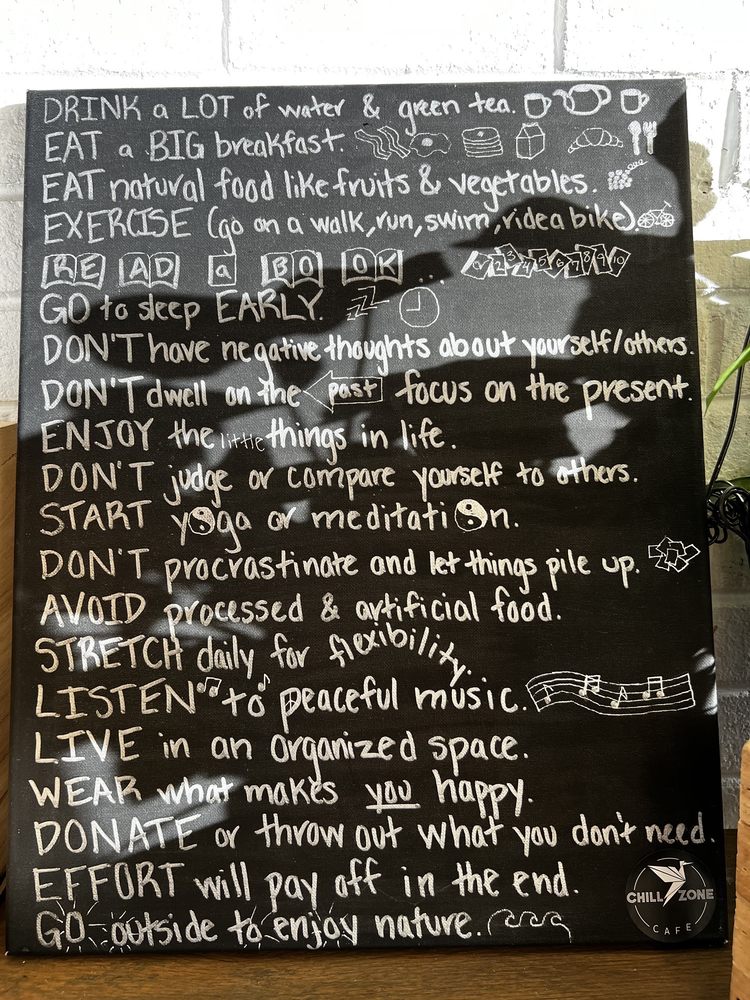 DRINK a LOT of water & green tea.
EAT a BIG breakfast.
EAT natural food like fruits & vegetables.
EXERCISE (go on a walk, run, swim, ride a bike).
READ a BOOK... 1 2 3 4 5 6 7 8 9 10
GO to sleep EARLY. ZZZ
DON'T have negative thoughts about yourself/others.
DON'T dwell on the past focus on the present.
ENJOY the little things in life.
DON'T judge or compare yourself to others.
START yoga or meditation.
DON'T procrastinate and let things pile up.
AVOID processed & artificial food.
STRETCH daily for flexibility.
LISTEN to peaceful music.
LIVE in an organized space.
WEAR what makes you happy.
DONATE or throw out what you don't need.
EFFORT will pay off in the end.
GO outside to enjoy nature.
CHILL ZONE
CAFE